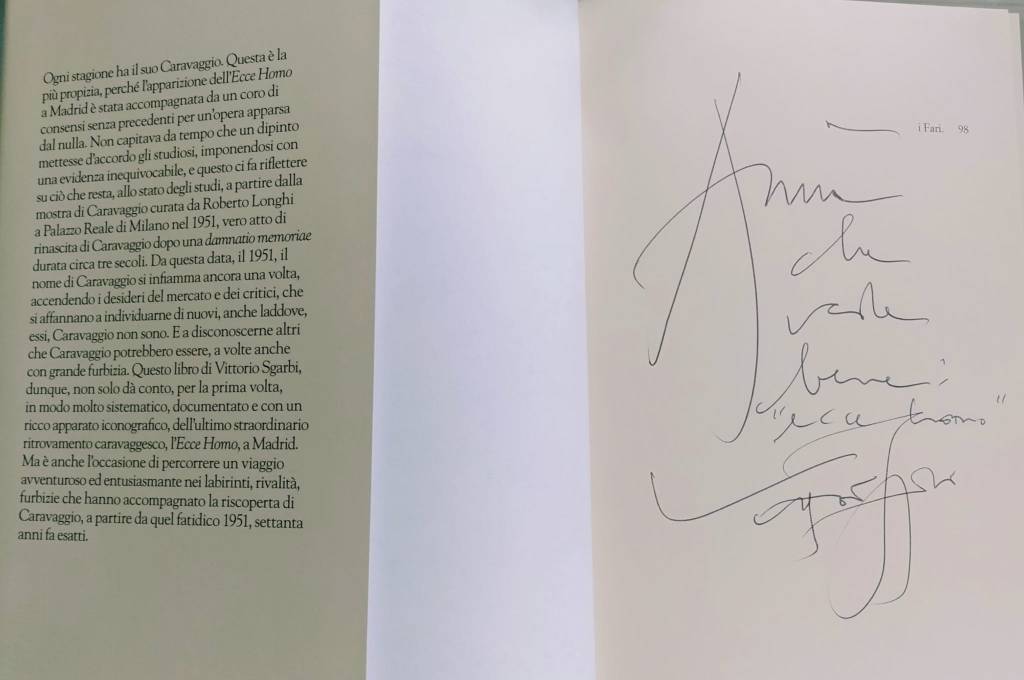 Ogni stagione ha il suo Caravaggio. Questa è la
più propizia, perché l'apparizione dell'Ecce Homo
a Madrid è stata accompagnata da un coro di
consensi senza precedenti per un'opera apparsa
dal nulla. Non capitava da tempo che un dipinto
mettesse d'accordo gli studiosi, imponendosi con
una evidenza inequivocabile, e questo ci fa riflettere
su ciò che resta, allo stato degli studi, a partire dalla
mostra di Caravaggio curata da Roberto Longhi
a Palazzo Reale di Milano nel 1951, vero atto di
rinascita di Caravaggio dopo una damnatio memoriae
durata circa tre secoli. Da questa data, il 1951, il
nome di Caravaggio si infiamma ancora una volta,
accendendo i desideri del mercato e dei critici, che
si affannano a individuarne di nuovi, anche laddove,
essi, Caravaggio non sono. E a disconoscerne altri
che Caravaggio potrebbero essere, a volte anche
con grande furbizia. Questo libro di Vittorio Sgarbi,
dunque, non solo dà conto, per la prima volta,
in modo molto sistematico, documentato e con un
ricco apparato iconografico, dell'ultimo straordinario
ritrovamento caravaggesco, l'Ecce Homo, a Madrid.
Ma è anche l'occasione di percorrere un viaggio
avventuroso ed entusiasmante nei labirinti, rivalità,
furbizie che hanno accompagnato la riscoperta di
Caravaggio, a partire da quel fatidico 1951, settanta
anni fa esatti.
i Fari. 98
A
che
vede
bene:
"ecce homo"